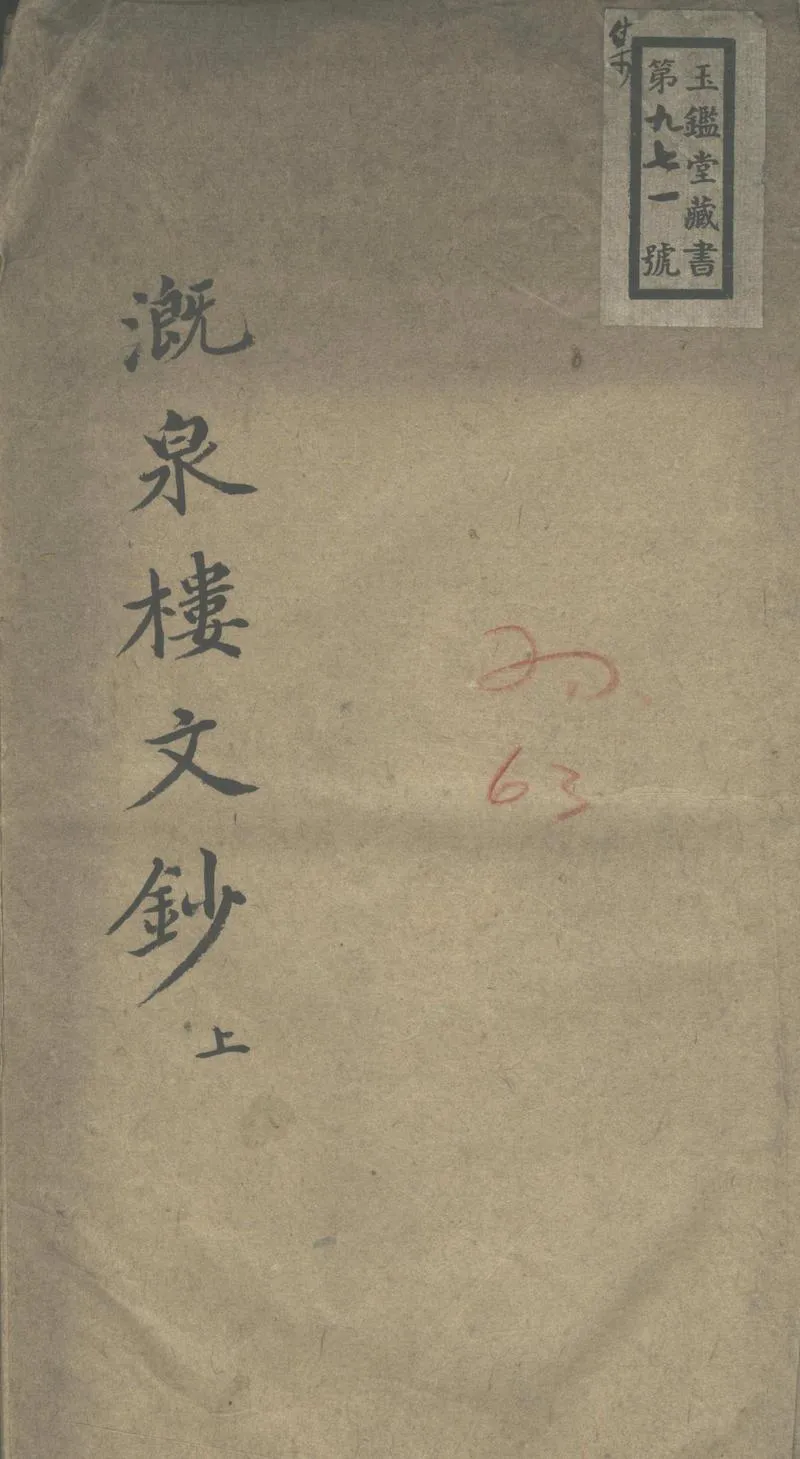 玉鑑堂藏書
第九七一號
集
溉泉樓文鈔上
63